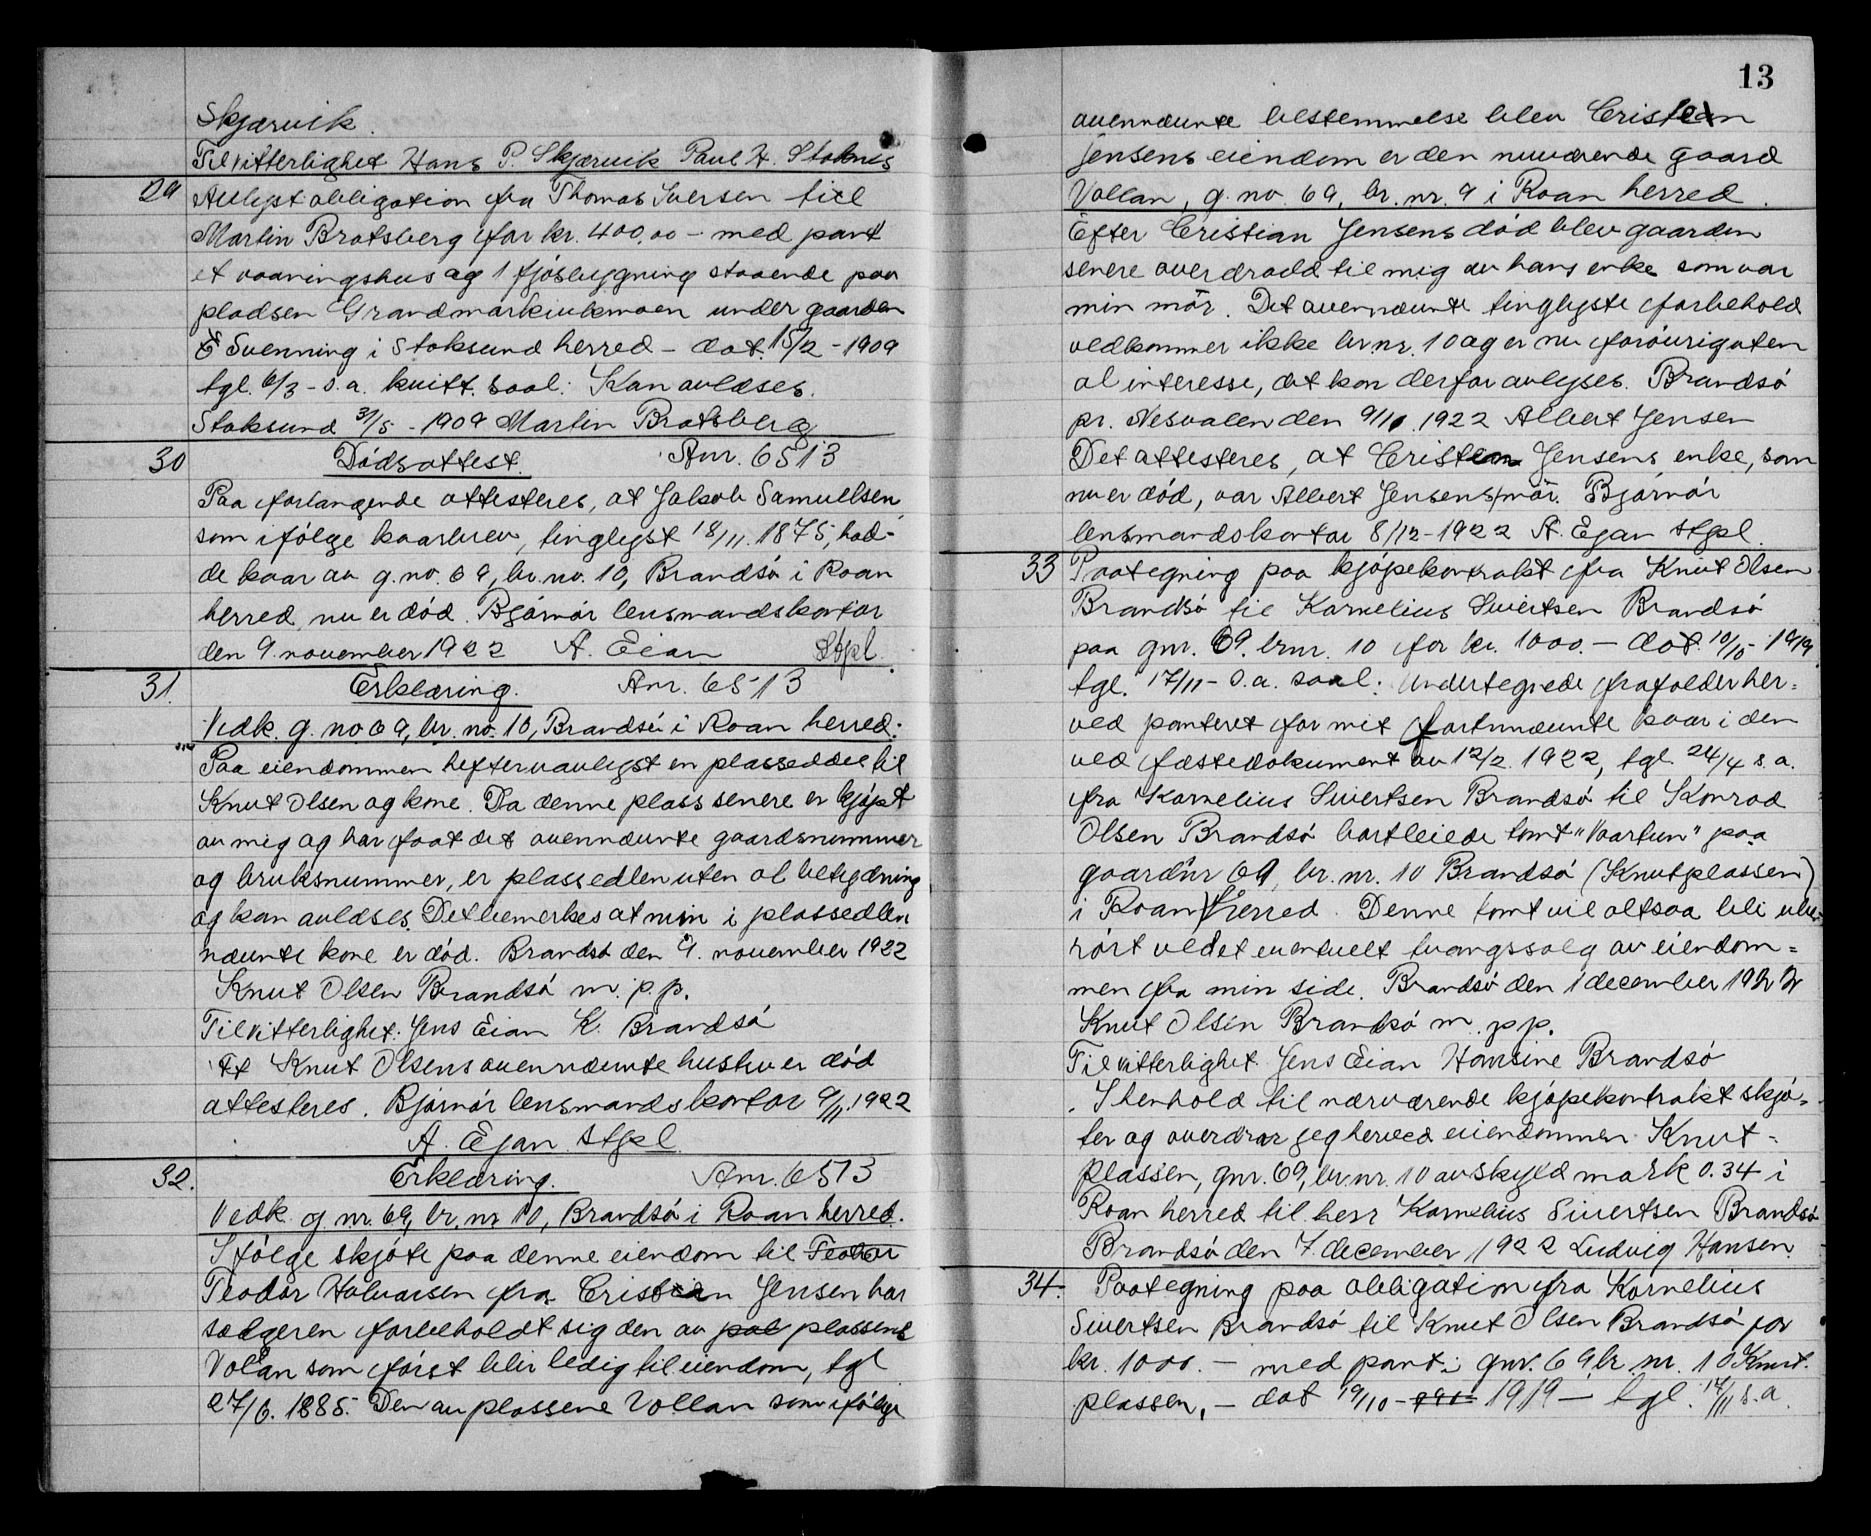 Skjærvik.
Til vitterlighet Hans P. Skjærvik Paul H. Stoknes
29 Avlyst obligation fra Thomas Iversen till
Martin Bratsberg for kr. 400,00 - med pant
et vaaningshus og 1 fjøsbygning staaende paa
pladsen Grandmarkvikmoen under gaarden
Svenning i Stoksund herred - dat. 15/2 - 1909
tgl. 6/3 - s.a. kvitt. saal: Kan avlæses.
Stoksund 31/5 - 1909 Martin Bratsberg
30 Dødsattest. Anr. 6513
Paa forlangende attesteres, at Jakob Samuelsen,
som ifølge kaarbrev, tinglyst 18/11. 1875, had-
de kaar av g.no. 69, br. no. 10, Brandsø i Roan
herred, nu er død. Bjørnør lensmandskontor
den 9. november 1922 A. Eian Stpl.
31. Erklæring. Anr. 6513
Vedk. g. no 69, br. no. 10, Brandsø i Roan herred.
Paa eiendommen hefter uavlyst en plasseddel til
Knut Olsen og kone. Da denne plass senere er kjøpt
av mig og har faat det ovennævnte gaardsnummer
og bruksnummer, er plassedlen uten al betydning
og kan avlæses. Det bemerkes at min i plassedlen
nævnte kone er død. Brandsø den 9. november 1922
Knut Olsen Brandsø m. p. p.
Til vitterlighet: Jens Eian K. Brandsø
At Knut Olsens ovennævnte hustru er død
attesteres. Bjørnør lensmandskontor 9/11. 1922
A. Ejan Stpl.
32. Erklæring. Anr. 6513
Vedk. g nr. 69, br. nr 10, Brandsø i Roan herred.
Ifølge skjøte paa denne eiendom til Teodor
Teodor Halvarsen fra Cristian Jensen har
sælgeren forbeholdt sig den av pal plassene
Volan som først blir ledig til eiendom, tgl
27/6. 1885. Den av plassene Vollan som ifølge
13
ovennævnte bestemmelse blev Cristian
Jensens eiendom er den nuværende gaard
Vollan, g. no. 69, br. nr. 9 i Roan herred.
Efter Cristian Jensens død blev gaarden
senere overdradd til mig av hans enke som var
min mor. Det ovennævnte tinglyste forbehold
vedkommer ikke br. nr. 10 og er nu forøvrig uten
al interesse, det kan derfor avlyses. Brandsø
pr. Nesvalen den 9/11. 1922 Albert Jensen
Det attesteres, at Cristian Jensens enke, som
nu er død, var Albert Jensens mor. Bjørnør
lensmandskontor 8/12 - 1922 A. Ejan Stpl.
33 Paategning paa kjøpekontrakt fra Knut Olsen
Brandsø til Kornelius Sivertsen Brandsø
paa gnr. 69. brnr. 10 for kr. 1000. - dat. 19/10 - 1919
tgl. 17/11 - s.a. saal: Undertegnede frafalder her=
ved panteret for mit fortnævnte kaar i den
ved fæstedokument av 12/2. 1922, tgl. 24/4 s.a.
fra Kornelius Sivertsen Brandsø til Konrad
Olsen Brandsø bortleiede tomt "Vaartun" paa
gaardnr 69, br. nr. 10 Brandsø (Knutplassen)
i Roan herred. Denne tomt vil altsaa bli ube-
rørt ved et eventuelt tvangssalg av eiendom=
men fra min side. Brandsø den 1 december 1922
Knut Olsen Brandsø m. p p.
Til vitterlighet: Jens Eian Hansine Brandsø
I henhold til nærværende kjøpekontrakt skjø=
ter og overdrar jeg herved eiendommen Knut-
plassen, gnr. 69, br. nr. 10 av skyld mark 0.34 i
Roan herred til herr Kornelius Sivertsen Brandsø
Brandsø den 7 december 1922 Ludvig Hansen
34. Paategning paa obligation fra Kornelius
Sivertsen Brandsø til Knut Olsen Brandsø for
kr. 1000. - med pant i gnr. 69 br. nr. 10 Knut-
plassen, - dat 19/10 - 1919 - tgl. 17/11 s.a.